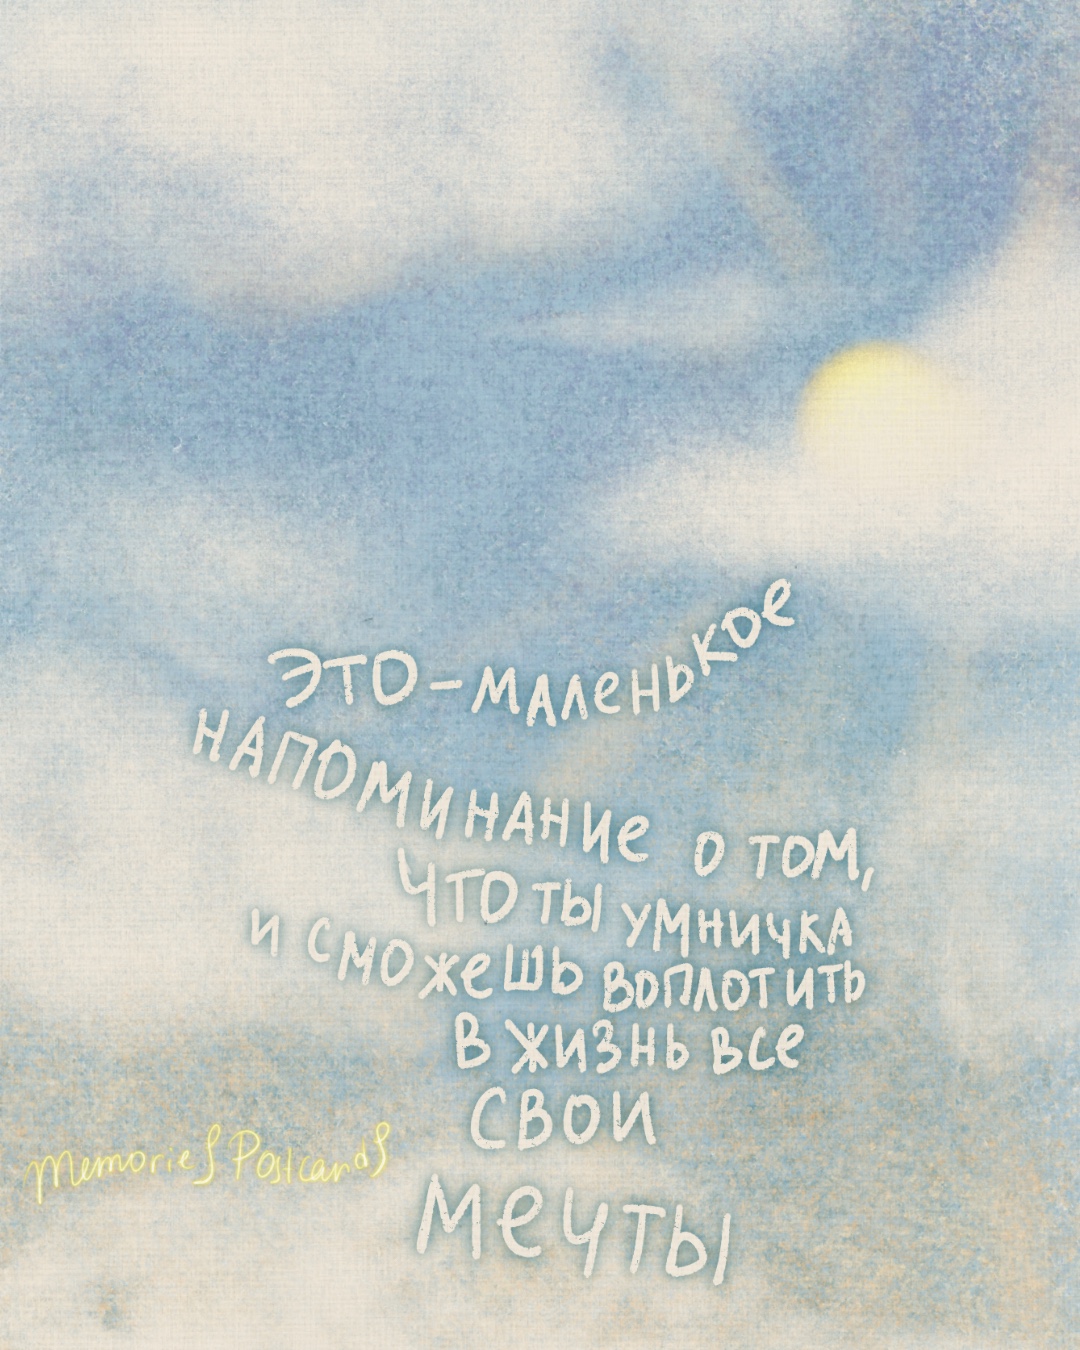 ЭТО - МАЛЕНЬКОЕ
НАПОМИНАНИЕ О ТОМ,
ЧТО ТЫ УМНИЧКА
И СМОЖЕШЬ ВОПЛОТИТЬ
В ЖИЗНЬ ВСЕ
СВОИ
МЕЧТЫ
Memories Postcards